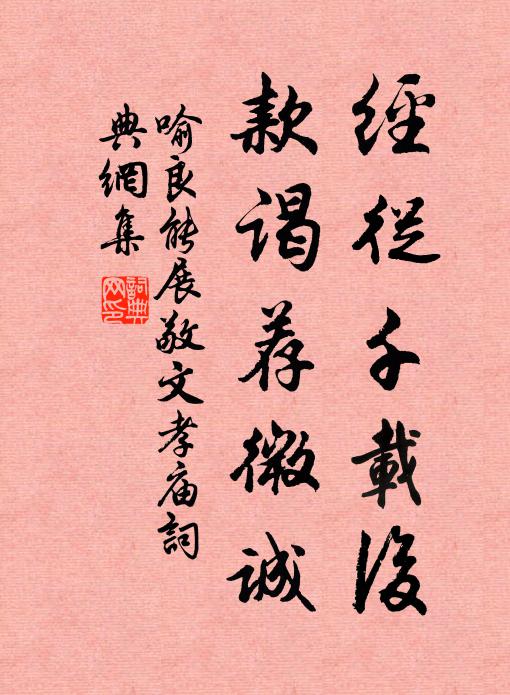 經從千載後
款謁荐微誠
喻良能展敬文孝庙詞
典網集
詞典
网印